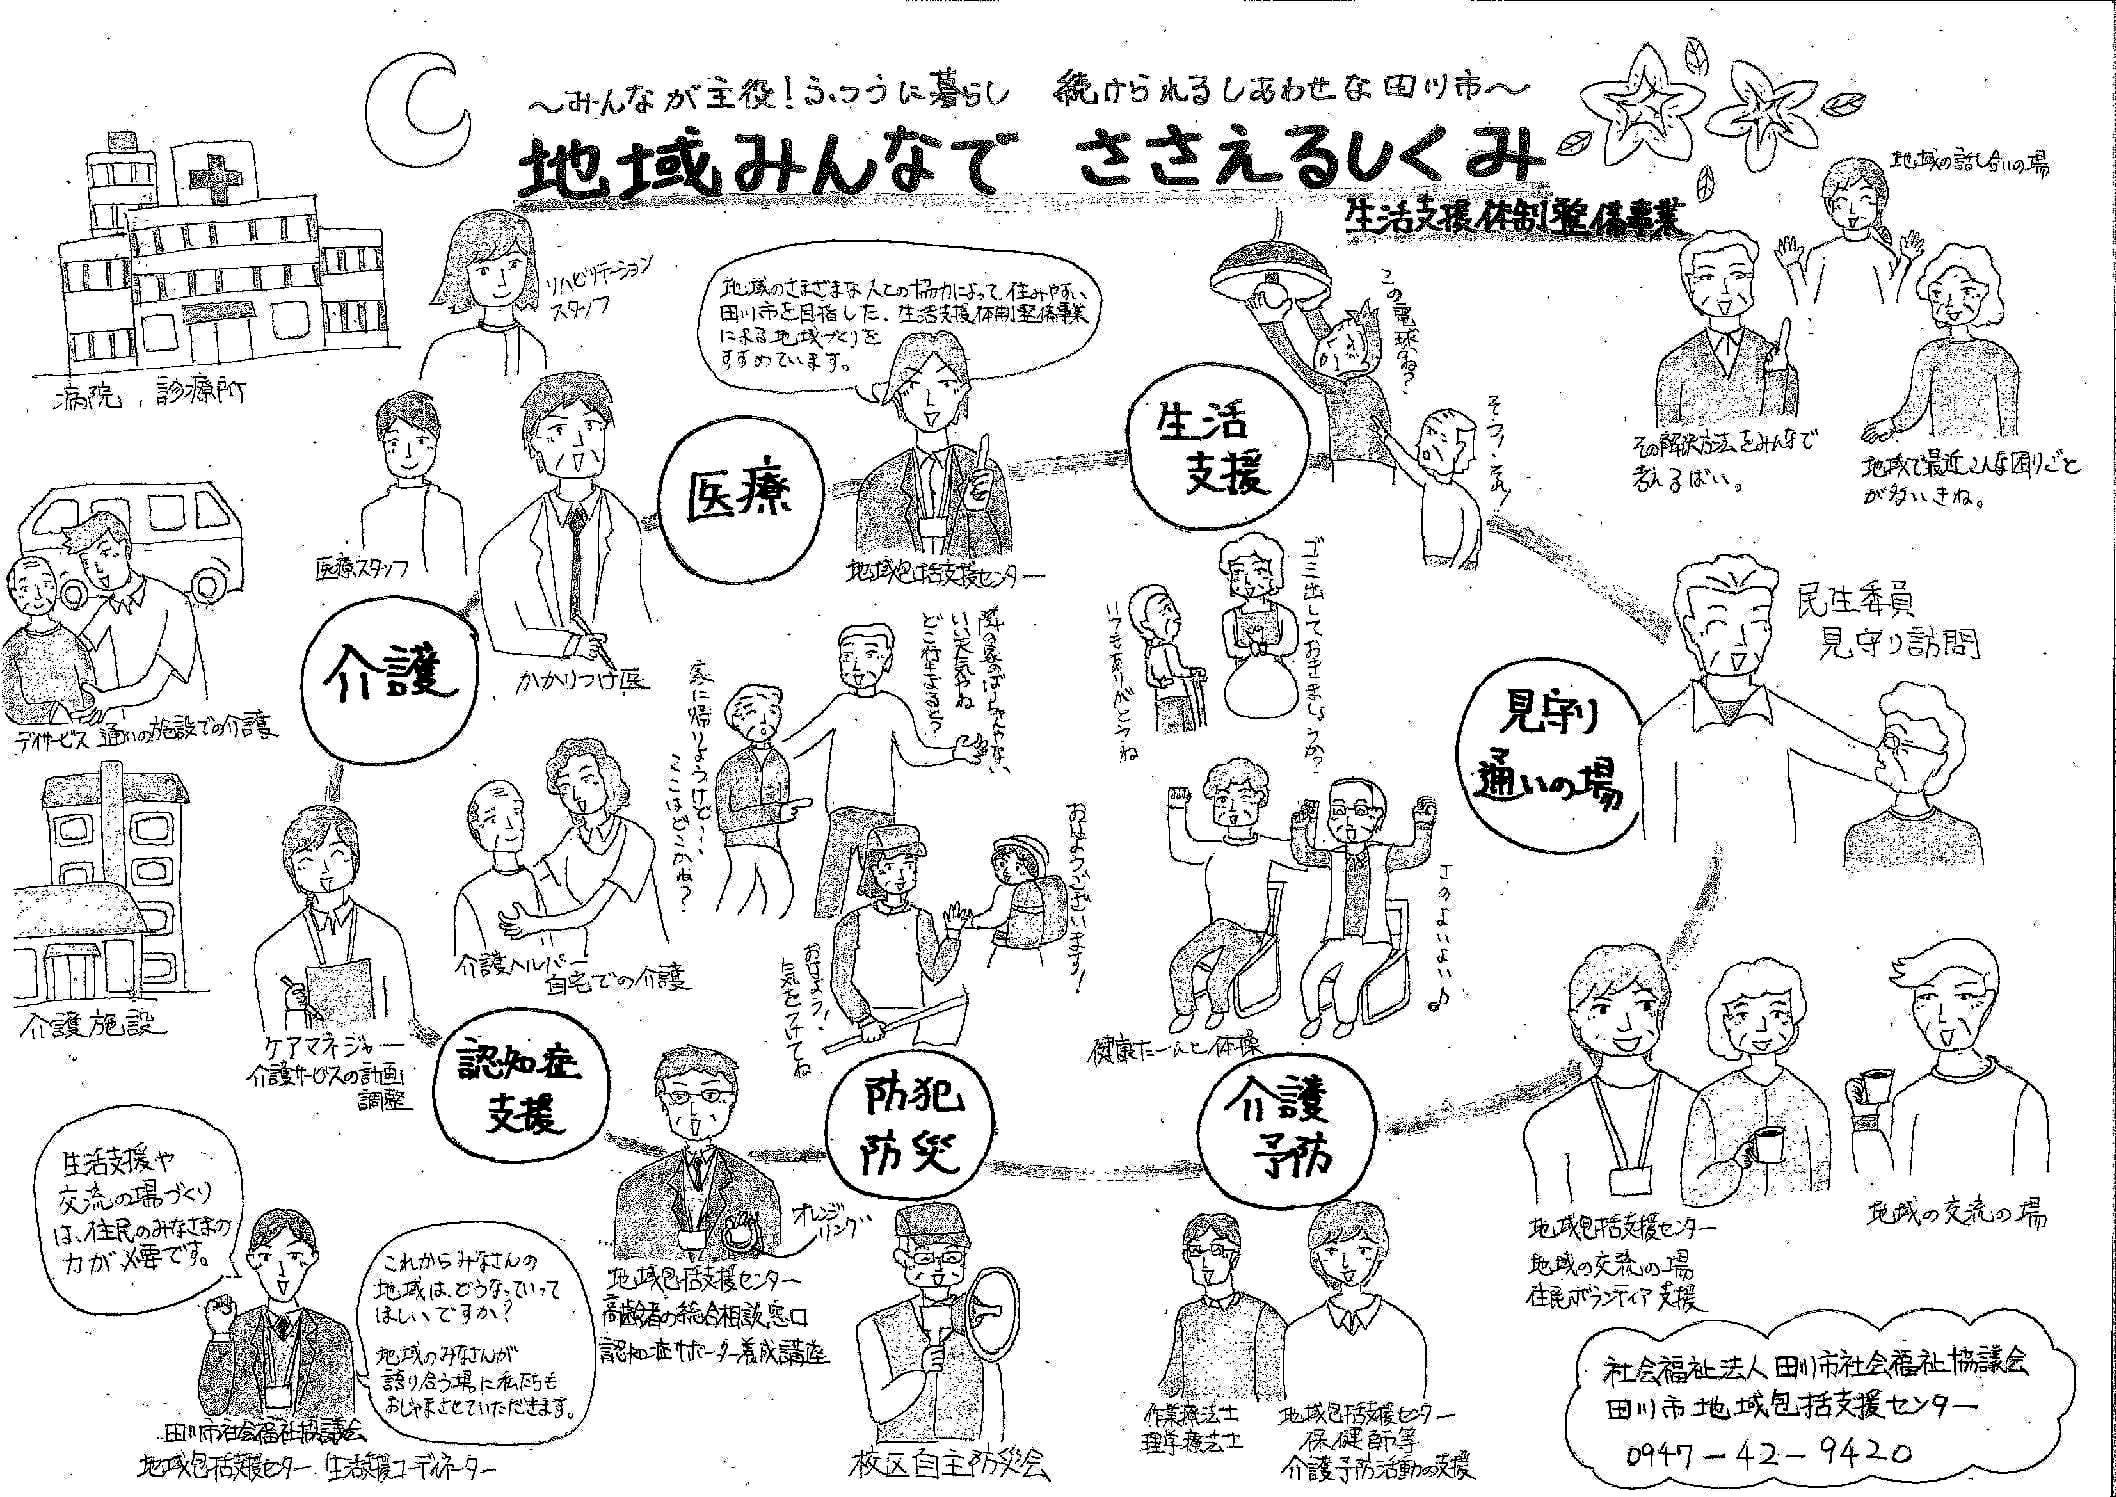 ～みんなが主役！ふつうに暮らし 続けられるしあわせな田川市～
地域みんなで ささえるしくみ
生活支援体制整備事業
病院，診療所
リハビリテーション
スタッフ
医療スタッフ
かかりつけ医
医療
地域のさまざまな人との協力によって、住みやすい
田川市を目指した、生活支援体制整備事業
による地域づくりを
すすめています。
地域包括支援センター
生活
支援
この電球ね？
そう！それ！
地域の話し合いの場
その解決方法をみんなで
考えるばい。
地域で最近こんな困りごと
が多いきね。
民生委員
見守り訪問
見守り
通いの場
ゴミ出しておきましょうか？
いつもありがとうね
隣の家のばあちゃんやない
いい天気やね
どこ行きよると？
家に帰りようけど・・・
ここはどこかね？
介護
デイサービス 通いの施設での介護
介護施設
ケアマネジャー
介護サービスの計画
調整
介護ヘルパー
自宅での介護
おはようございます！
おはよう！
気をつけてね
このよいよい♪
健康たーんと体操
認知症
支援
オレンジ
リング
地域包括支援センター
高齢者の総合相談窓口
認知症サポーター養成講座
防犯
防災
校区自主防災会
介護
予防
作業療法士
理学療法士
地域包括支援センター
保健師等
介護予防活動の支援
地域包括支援センター
地域の交流の場
住民ボランティア支援
地域の交流の場
生活支援や
交流の場づくり
は、住民のみなさまの
力が必要です。
これからみなさんの
地域は、どうなっていって
ほしいですか？
地域のみなさんが
語り合う場に私たちも
おじゃまさせていただきます。
田川市社会福祉協議会
地域包括支援センター 生活支援コーディネーター
社会福祉法人田川市社会福祉協議会
田川市地域包括支援センター
0947-42-9420